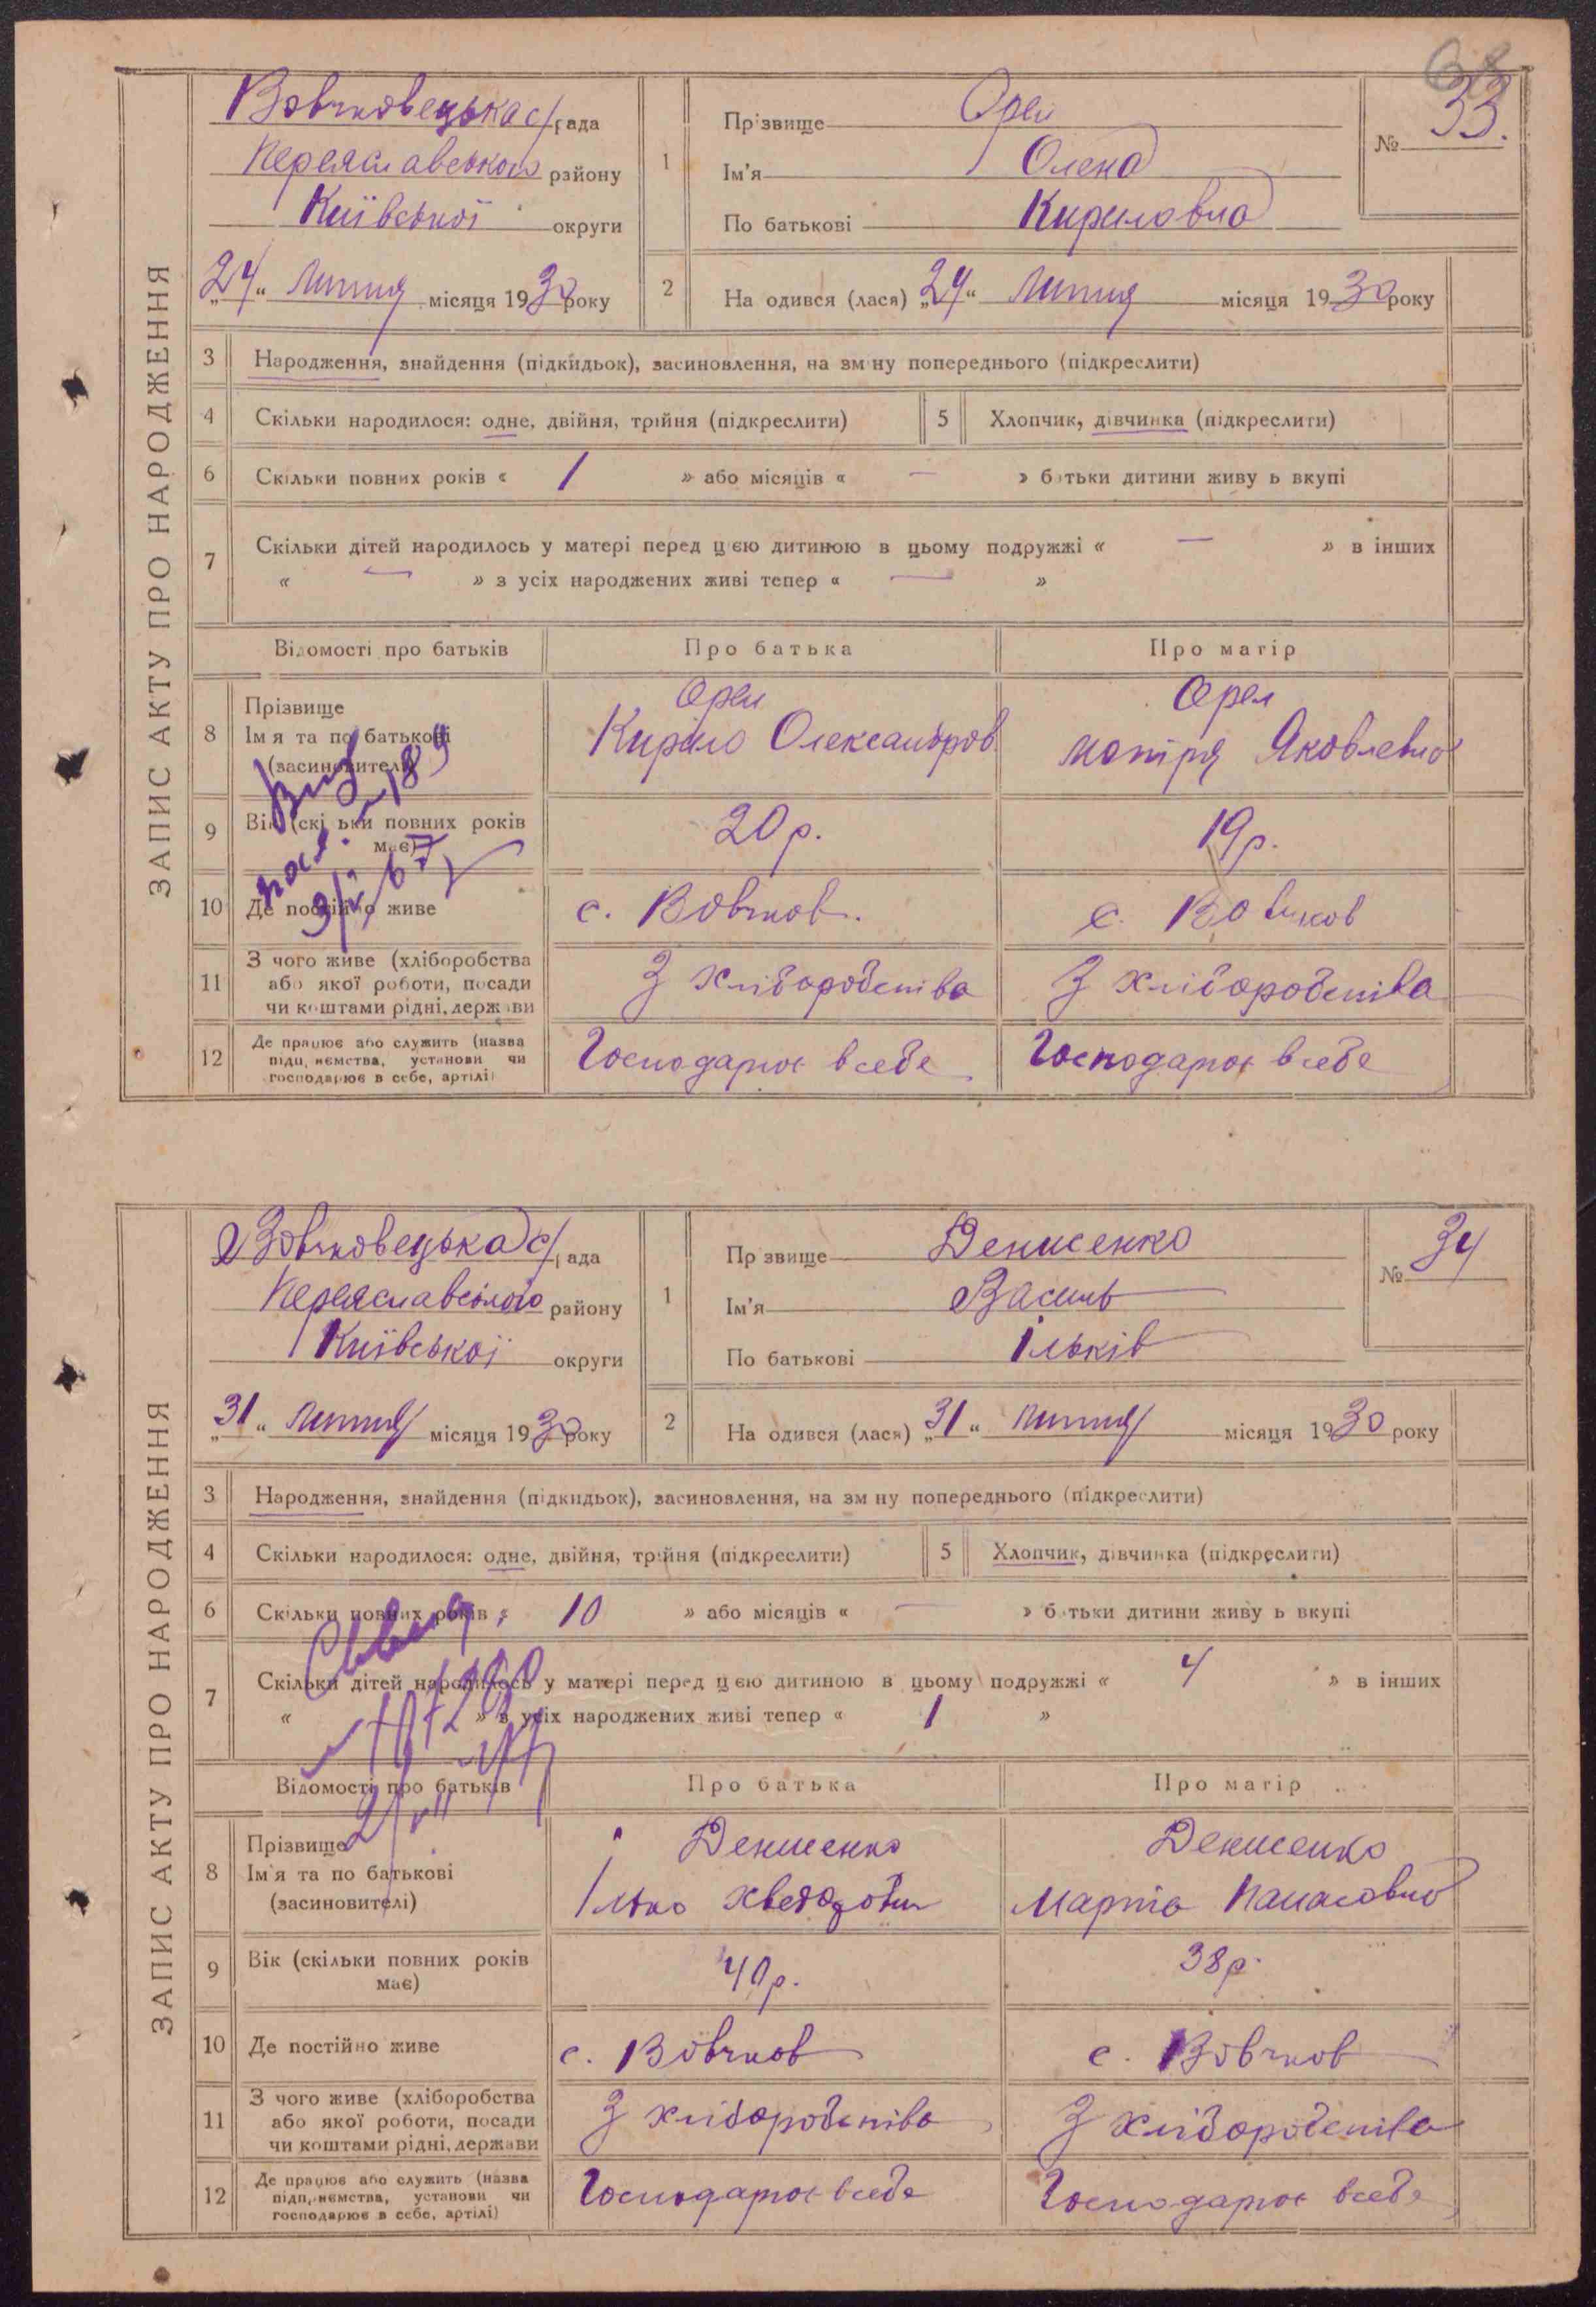 ЗАПИС АКТУ ПРО НАРОДЖЕННЯ
Вовчковецька с/рада
Переяславського району
Київської округи
„24“ Липня місяця 1930 року
1
Прізвище Орел
Ім'я Олена
По батькові Кириловна
№ 33.
2
На одився (лася) „24“ Липня місяця 1930 року
3 Народження, знайдення (підкидьок), засиновлення, на зм ну попереднього (підкреслити)
4 Скільки народилося: одне, двійня, трійня (підкреслити) 5 Хлопчик, дівчинка (підкреслити)
6 Скільки повних років « 1 » або місяців « — » б тьки дитини живу ь вкупі
7 Скільки дітей народилось у матері перед цією дитиною в цьому подружжі « — » в інших
« — » з усіх народжених живі тепер « — »
Відомості про батьків Про батька Про матір
8 Прізвище Орел Орел
Ім я та по батькові Кирило Олександров. Мотря Яковлевна
(засиновителі)
9 Вік (скі ьки повних років має) 20 р. 19 р.
10 Де постійно живе с. Вовчков. с. Вовчков
11 З чого живе (хліборобства або якої роботи, посади чи коштами рідні, держави З хліборобства З хліборобства
12 Де працює або служить (назва підприємства, установи чи господарює в себе, артілі) Господарює в себе Господарює в себе
ЗАПИС АКТУ ПРО НАРОДЖЕННЯ
Вовчковецька с/рада
Переяславського району
Київської округи
„31“ Липня місяця 1930 року
1
Пр звище Денисенко
Ім'я Василь
По батькові Ільків
№ 34
2
На одився (лася) „31“ Липня місяця 1930 року
3 Народження, знайдення (підкидьок), засиновлення, на зм ну попереднього (підкреслити)
4 Скільки народилося: одне, двійня, трійня (підкреслити) 5 Хлопчик, дівчинка (підкреслити)
6 Скільки повних років « 10 » або місяців « — » б тьки дитини живу ь вкупі
7 Скільки дітей народилось у матері перед цією дитиною в цьому подружжі « 4 » в інших
« » з усіх народжених живі тепер « 1 »
Відомості про батьків Про батька Про матір
8 Прізвище Денисенко Денисенко
Ім'я та по батькові Ілько Марта Панасовна
(засиновителі)
9 Вік (скільки повних років має) 40 р. 38 р.
10 Де постійно живе с. Вовчков с. Вовчков
11 З чого живе (хліборобства або якої роботи, посади чи коштами рідні, держави З хліборобства З хліборобства
12 Де працює або служить (назва підприємства, установи чи господарює в себе, артілі) Господарює в себе Господарює в себе